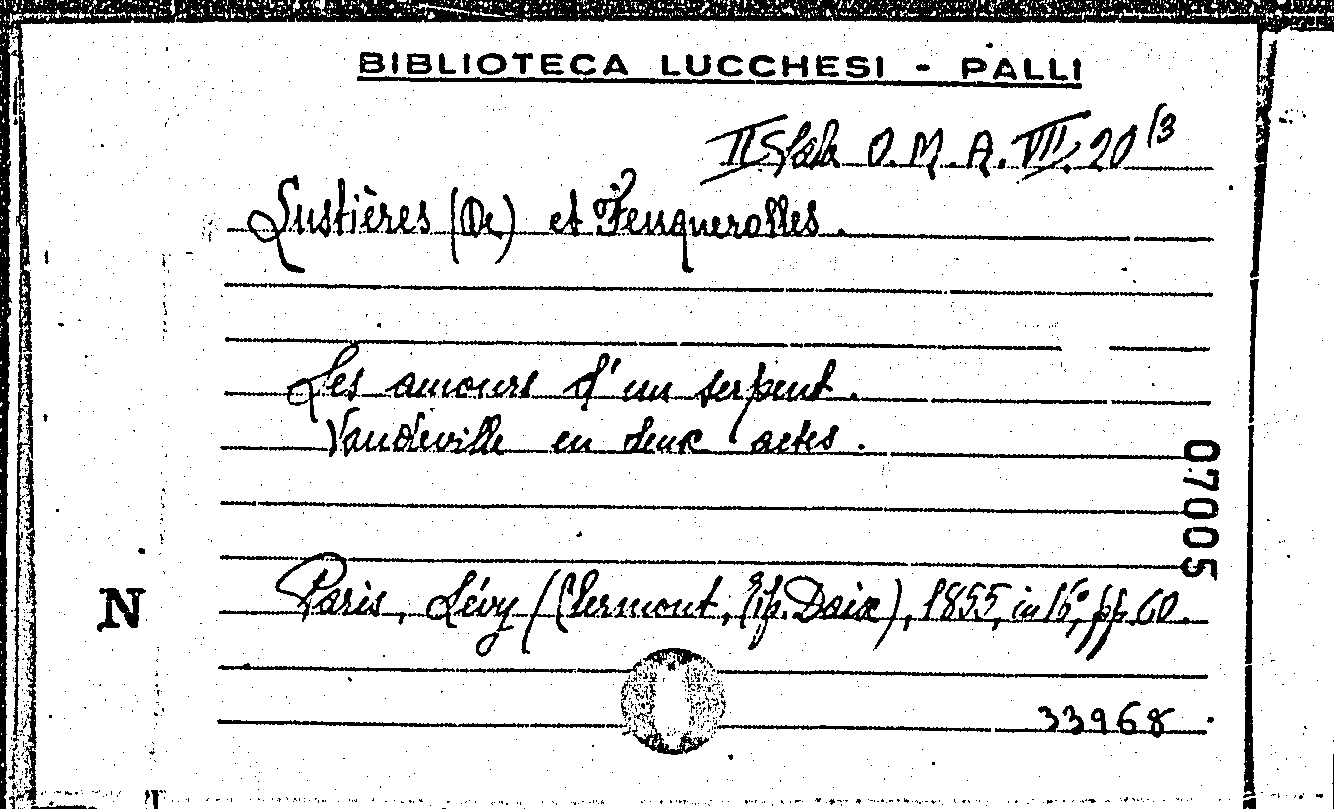 BIBLIOTECA LUCCHESI - PALLI
II Sala O. M. A. VII. 20 (3
Lustières (De) et Feuquerolles.
Les amours d'un serpent.
Vaudeville en deux actes.
07005
Paris, Lévy (Clermont, Tip. Daix), 1855, in 16°, pp. 60.
N
33968